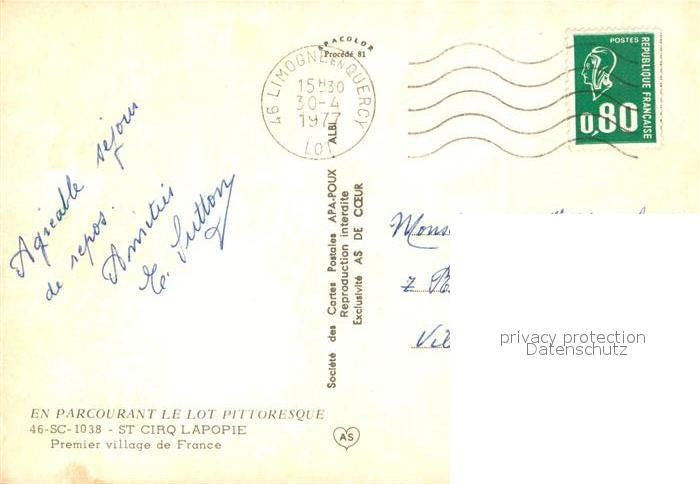 APACOLOR
Procédé 81
46 LIMOGNE EN QUERCY
15H30
30-4
1977
LOT
POSTES
REPUBLIQUE FRANÇAISE
0,80
Agréable séjour
de repos.
Amitiés
Sutton
Société des Cartes Postales APA-POUX ALBI
Reproduction interdite
Exclusivité AS DE CŒUR
Mons
7
Vil
privacy protection
Datenschutz
EN PARCOURANT LE LOT PITTORESQUE
46-SC-1038 - ST CIRQ LAPOPIE
Premier village de France
AS